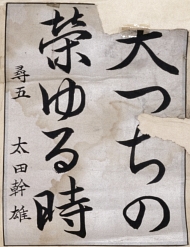 天つちの
榮ゆる時
尋五 太田幹雄